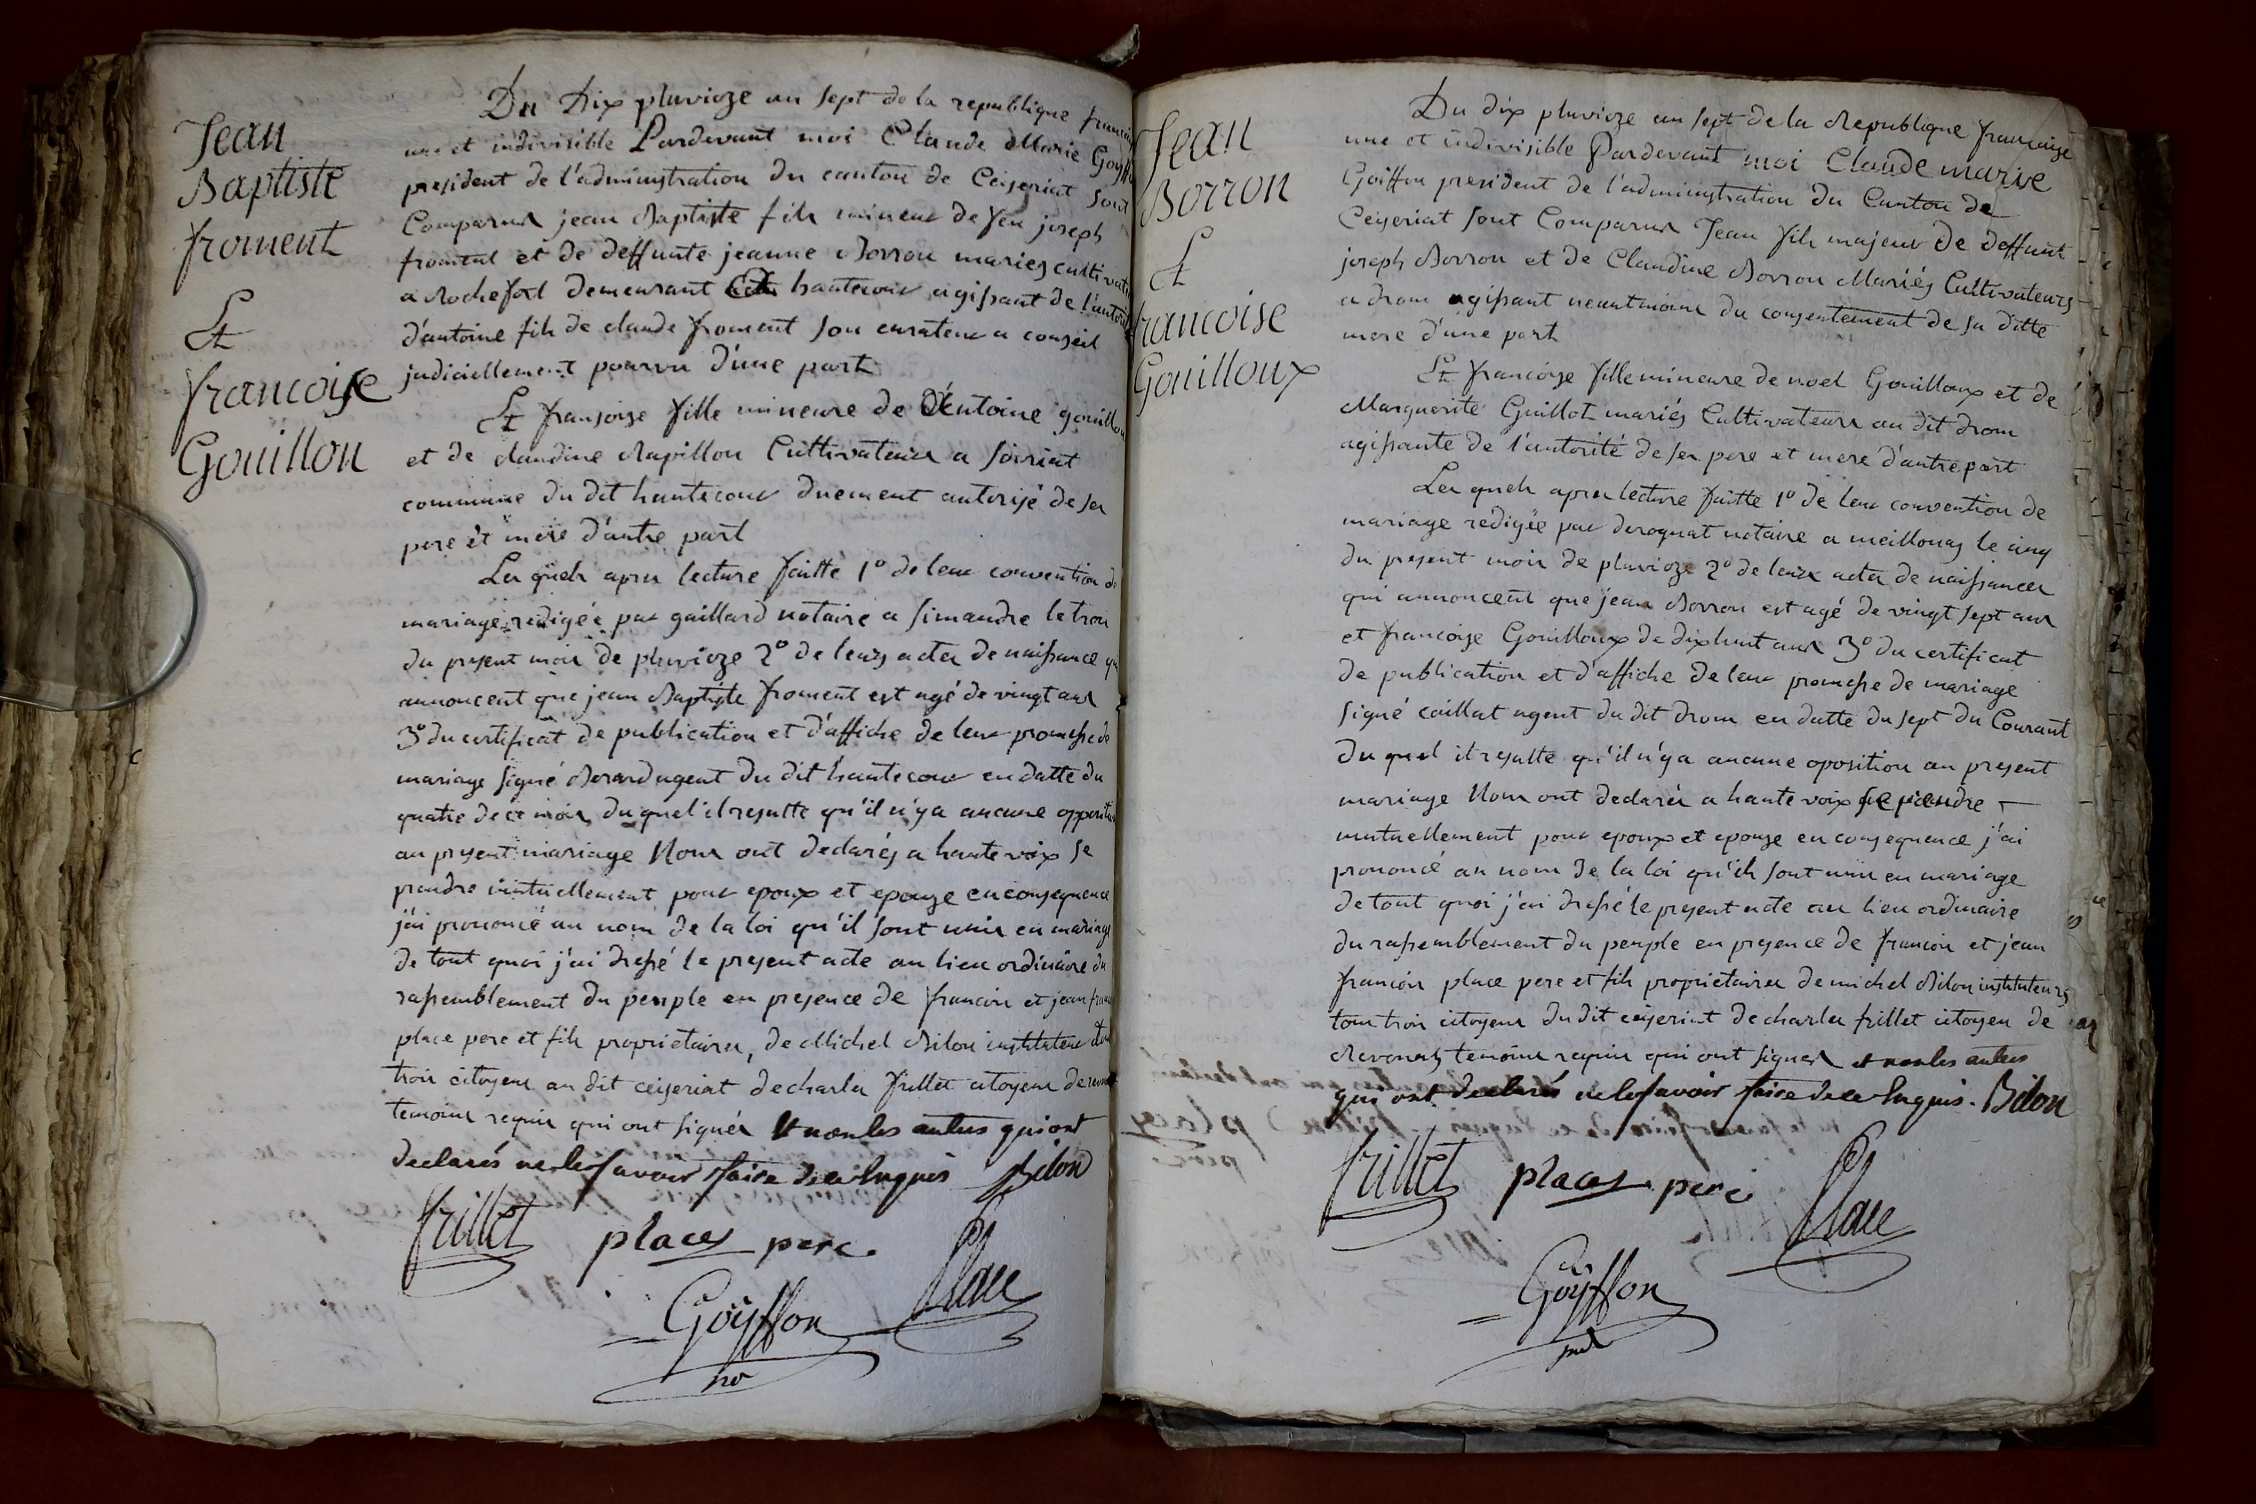 Jean
Baptiste
froment
Et
francoise
Gouillon
Du Dix pluvioze an sept de la republique francai
une et indivisible Pardevant moi Claude Marie Goyffo
president de l'administration du canton de Ceyseriat sont
Comparus jean Baptiste fils mineur de feu joseph
froment et de deffunte jeanne Borron mariés cultivat
a Rochefort demeurant hautecour agissant de l'autori
d'antoine fils de claude froment son curateur a conseil
judiciellement pourvu d'une part
Et fransoize fille mineure de Antoine gouillon
et de claudine Rapillon Cultivateurs a soiriat
commune du dit hautecour duement autorisé de ses
pere et mere d'autre part
Les quels apres lecture faitte 1º de leur convention de
mariage redigée par gaillard notaire a simandre le trois
du present mois de pluvioze 2º de leurs actes de naissance qui
annoncent que jean Baptiste froment est agé de vingt ans
3º du certificat de publication et d'affiche de leur promesse de
mariage signé Berard agent du dit hautecour en datte du
quatre de ce mois, du quel il resulte qu'il n'y a aucune oppositio
au present mariage Nous ont declarés a haute voix se
prendre mutuellement pour epoux et epouze en consequence
j'ai prononcé au nom de la loi qu'il sont unis en mariage
de tout quoi j'ai dressé le present acte au lieu ordinaire du
rassemblement du peuple en presence de francois et jean fran
place pere et fils proprietaires, de Michel Bilon instituteur
trois citoyens au dit ceyseriat de charles frillet citoyen de
temoins requis qui ont signés et non les autres qui ont
declarés ne le savoir faire de ce Enquis Bilon
frillet places pere Place
Goÿffon
Jean
Borron
Et
francoise
Gouilloux
Du dix pluvioze an sept de la Republique francaise
une et indivisible Pardevant moi Claude marie
Goiffon president de l'administration du Canton de
Ceyseriat sont Comparus Jean fils majeur de deffunt
joseph Borron et de Claudine Borron Mariés Cultivateurs
a drom agissant neantmoins du consentement de sa ditte
mere d'une part
Et francoize fille mineure de noel Gouilloux et de
Marguerite Guillot mariés Cultivateurs au dit drom
agissante de l'autorité de ses pere et mere d'autre part
Les quels apres lecture faitte 1º de leur convention de
mariage redigée par deroquat notaire a meillonas le cinq
du present mois de pluvioze 2º de leurs actes de naissances
qui annoncent que jean Borron est agé de vingt sept ans
et francoize Gouilloux de dix huit ans 3º du certificat
de publication et d'affiche de leur promesse de mariage
signé caillat agent du dit drom en datte du sept du Courant
du quel il resulte qu'il n'y a aucune oposition au present
mariage Nous ont declarés a haute voix se prendre
mutuellement pour epoux et epouze en consequence j'ai
prononcé au nom de la loi qu'ils sont unis en mariage
de tout quoi j'ai dressé le present acte au lieu ordinaire
du rassemblement du peuple en presence de francois et jean
francois place pere et fils proprietaires de michel Bilon instituteurs
tous trois citoyens du dit ceyseriat de charles frillet citoyen de
Revonas temoins requis qui ont signés et non les autres
qui ont declarés ne le savoir faire de ce Enquis. Bilon
frillet places pere Place
Goÿffon